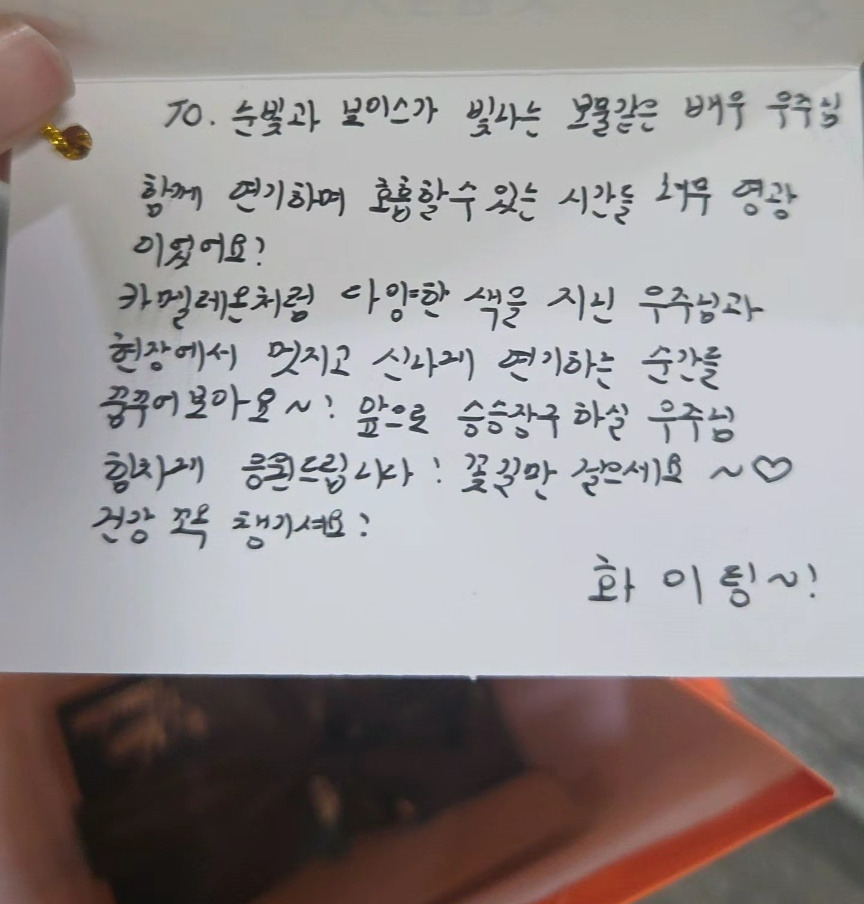 TO. 눈빛과 보이스가 빛나는 보물같은 배우 우주님
함께 연기하며 호흡할수 있는 시간들 너무 영광
이었어요!
카멜레온처럼 다양한 색을 지닌 우주님과
현장에서 멋지고 신나게 연기하는 순간을
꿈꾸어보아요~! 앞으로 승승장구 하실 우주님
힘차게 응원드립니다! 꽃길만 걸으세요 ~♡
건강 꼬옥 챙기셔요!
화이팅~!